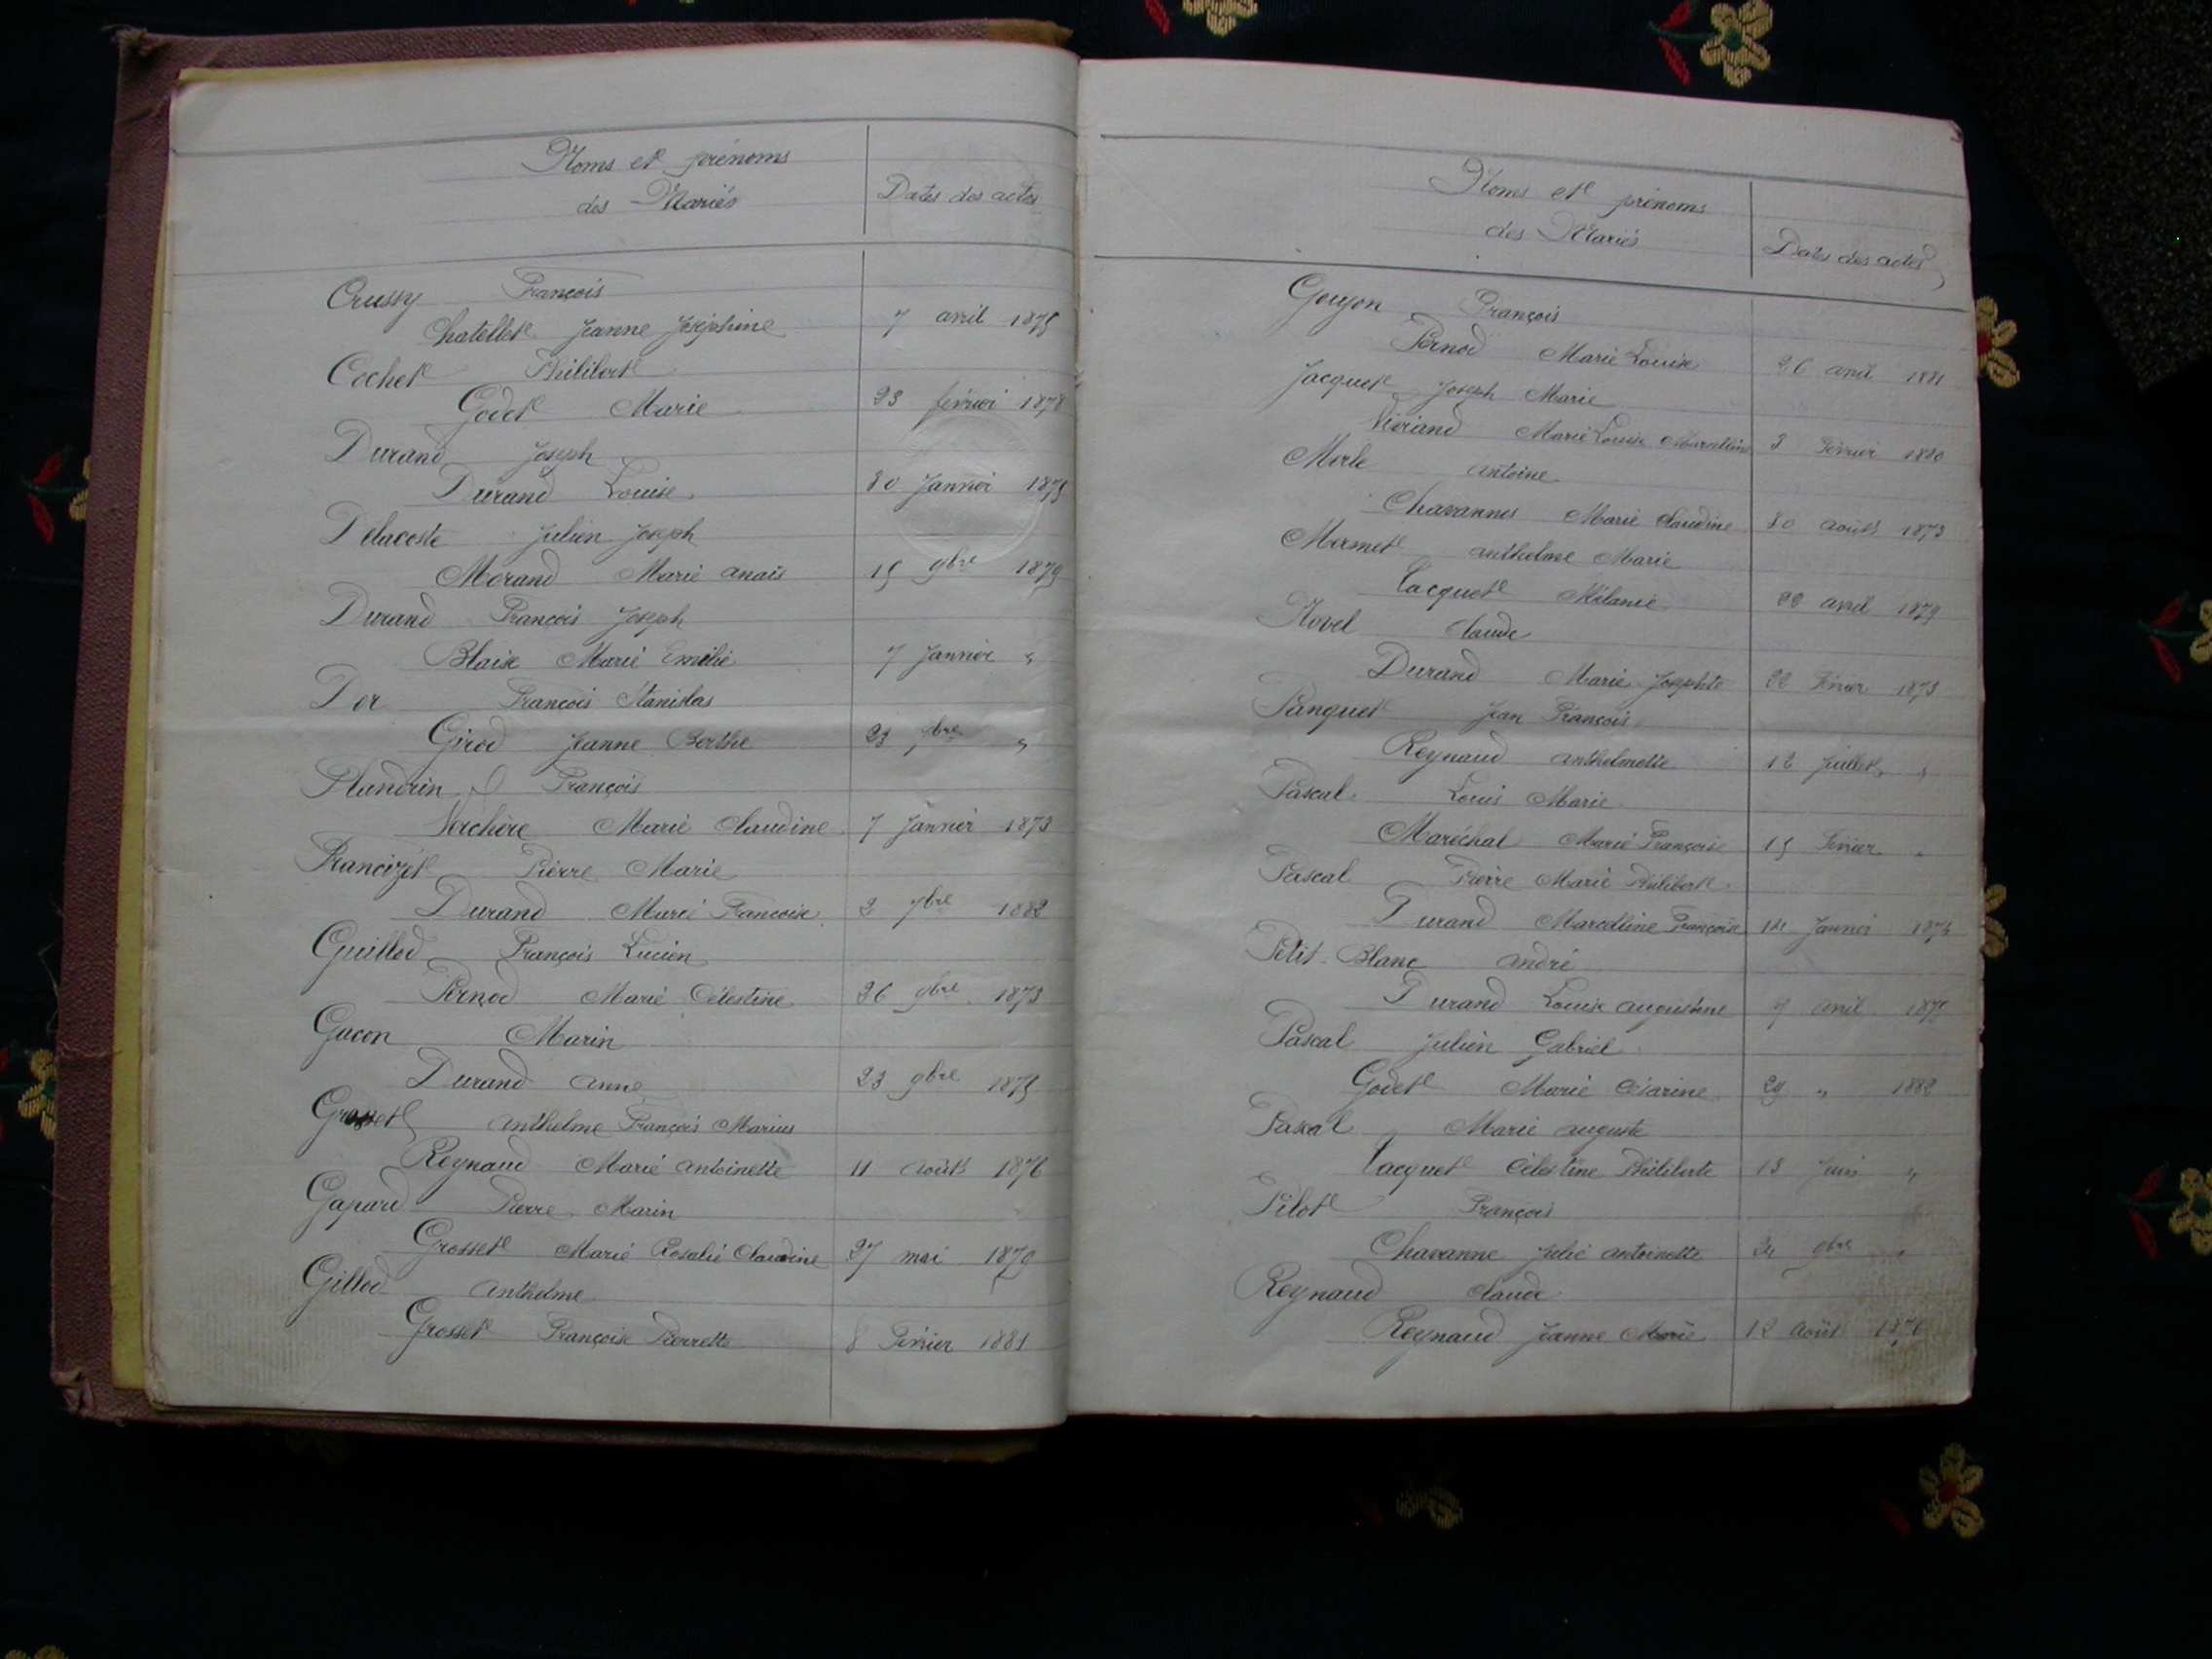 Noms et prénoms
des Mariés
Dates des actes
Crussy François
Chatellet Jeanne Joséphine 7 avril 1875
Cochet Philibert
Godet Marie 23 février 1878
Durand Joseph
Durand Louise 30 Janvier 1875
Delacoste Julien Joseph
Morand Marie anaïs 15 9bre 1879
Durand François Joseph
Blaise Marie Emélie 7 Janvier "
Dor François Stanislas
Girod Jeanne Berthe 23 9bre "
Flandrin François
Verchère Marie Claudine 7 Janvier 1873
Francizet Pierre Marie
Durand Marie Françoise 2 7bre 1882
Guillod François Lucien
Pernod Marie Célestine 26 9bre 1873
Gucon Marin
Durand anne 23 9bre 1875
Grosset anthelme François Marius
Reynaud Marie antoinette 11 août 1876
Gapard Pierre Marin
Grosset Marie Rosalie Claudine 27 mai 1879
Gillod anthelme
Grosset Françoise Pierrette 8 Février 1881
Noms et prénoms
des Mariés
Dates des actes
Goujon François
Pernod Marie Louise 26 avril 1881
Jacquet Joseph Marie
Viviand Marie Louise Marcelline 3 Février 1880
Merle antoine
Chavannes Marie Claudine 30 août 1873
Mermet anthelme Marie
Jacquet Mélanie 22 avril 1879
Novel Claude
Durand Marie Josephte 22 Février 1873
Panquet Jean François
Reynaud anthelmette 12 Juillet "
Pascal Louis Marie
Maréchal Marie Françoise 15 Février "
Pascal Pierre Marie Philibert
Durand Marcelline Françoise 14 Janvier 1876
Petit-Blanc andré
Durand Louise augustine 7 avril 1875
Pascal Julien Gabriel
Godet Marie Césarine 29 " 1882
Pascal Marie auguste
Jacquet Célestine Philiberte 13 Juin "
Pilot François
Chavanne Julie antoinette 24 9bre "
Reynaud Claude
Reynaud Jeanne Marie 12 Août 1876